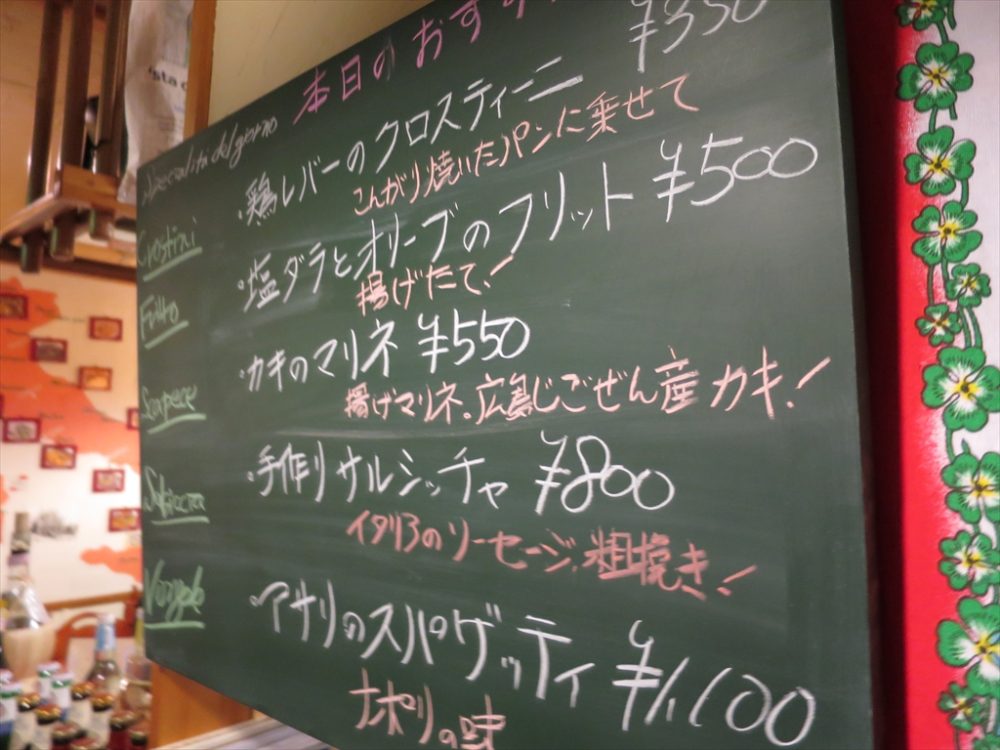 Specialità del giorno 本日のおすす
Crostini
・鶏レバーのクロスティーニ ¥350
こんがり焼いたパンに乗せて
Fritto
・塩ダラとオリーブのフリット ¥500
揚げたて!
Scapece
・カキのマリネ ¥550
揚げマリネ。広島じごぜん産カキ!
Salsiccia
・手作りサルシッチャ ¥800
イタリアのソーセージ。粗挽き!
Vongole
・アサリのスパゲッティ ¥1,100
ナポリの味